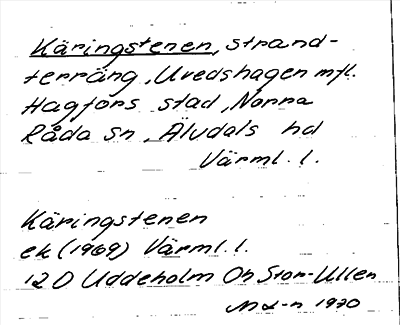 Käringstenen, strand-
terräng, Uvedshagen mfl.
Hagfors stad, Norra
Råda sn, Älvdals hd
Värml. l.
Käringstenen
ek (1969) Värml. l.
12 D Uddeholm Oh Stor-Ullen
1970